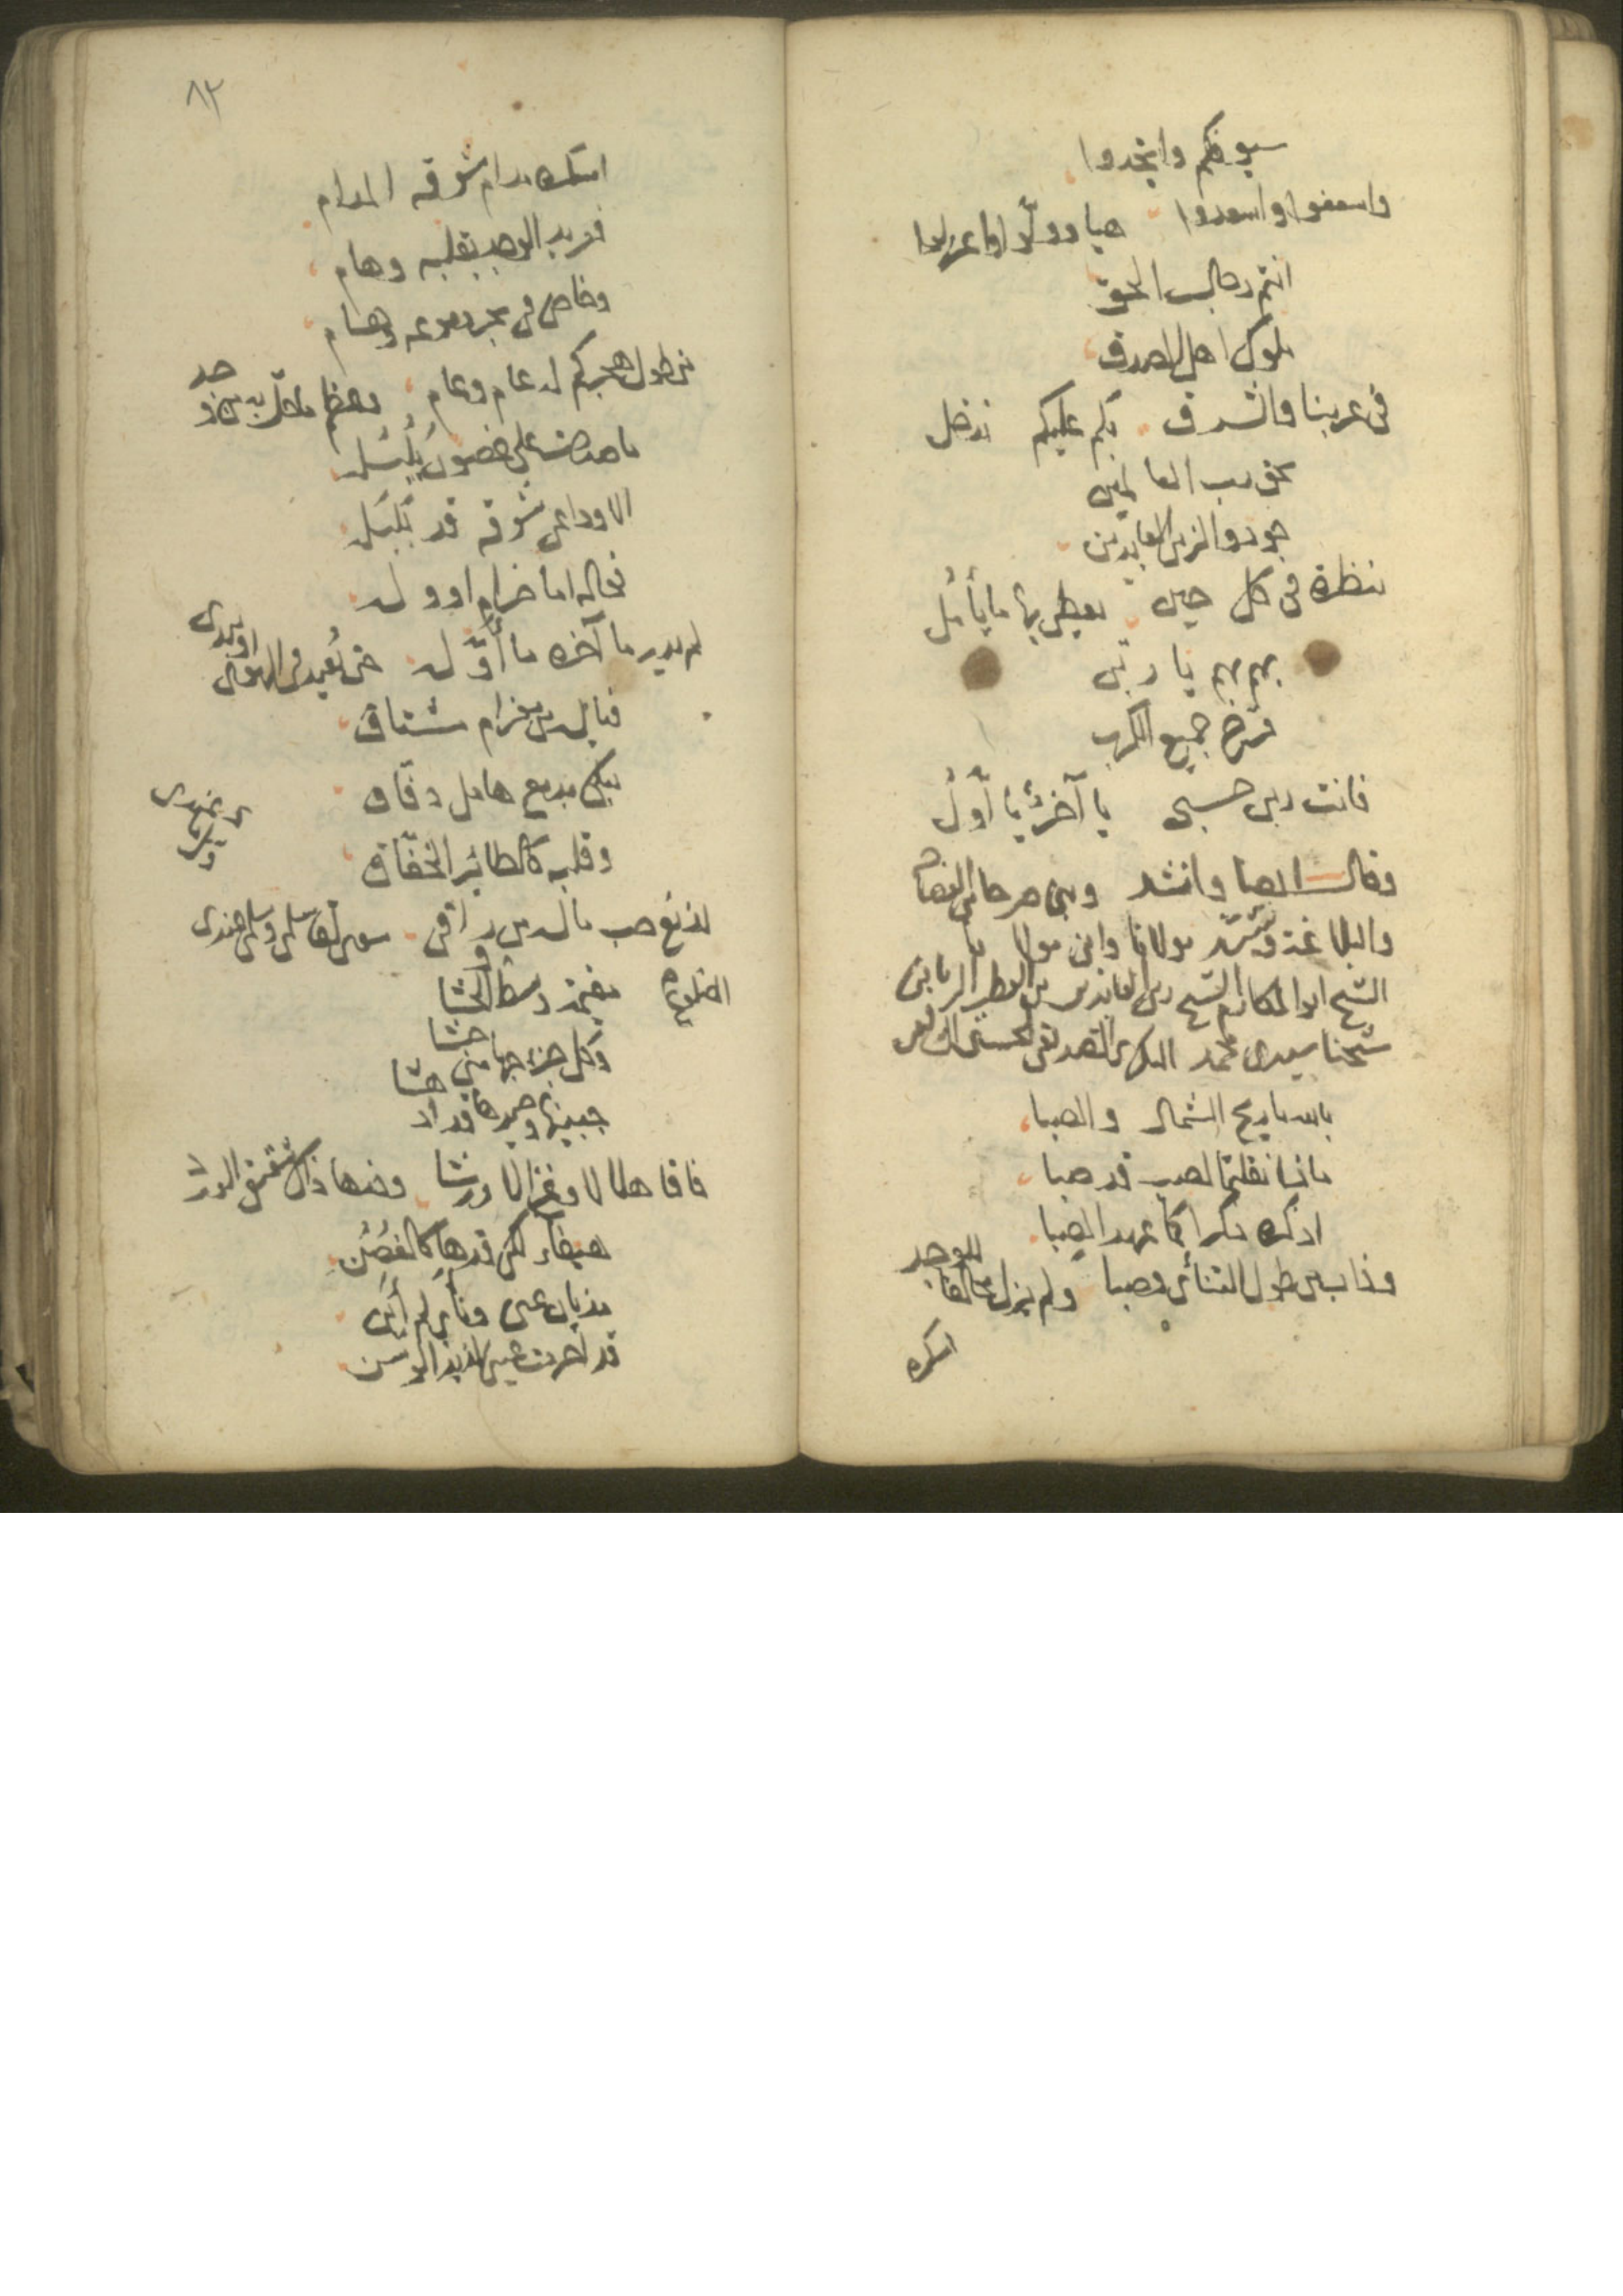 سيوفكم وانجدوا
واسعفوا واسعدوا هيا وولوا
انتم رجال الحق
ملوك اهل الصدق
في غربنا والشرق بكم عليكم ندخل
بحق رب العالمين
جودوا لزين العابدين
بنظرة في كل حين يعطى بها ما يأمل
بهم بهم يا ربي
فرج جميع الكرب
فانت ربي حسبي يا آخر يا أول
وقال ايضا وانشد
والبلاغة مولانا وابن مولانا
الشيخ ابو المكارم الشيخ زين العابدين بن القطب الرباني
شيخنا سيدي محمد البكري الصديقي
بالله يا ريح الشمال والصبا
ما نقلتما لصب قد صبا
اذكره ذكراكما عهد الصبا
وذاب من طول التنائي وصبا ولم يزل مخالفا للوجد
اسكره
٨٢
اسكره مدام شوقه المدام
فعربد الوجد بقلبه وهام
وخاض في بحر دموعه وهام
من طول هجركم له عام وعام
ما صدحت على غصون بلبله
الا ودا عي شوقه قد بلبله
فما له اما غرام اوو له
لم يدر ما آخره ما أوله حتى تعيد في الهوى او تبدى
فيا له من مغرم مشتاق
يبكي بدمع هامل دفاق
وقلبه كالطائر الخفاق
لذيغ حب ما له من راقي سوى لقا سلمى وسلمى عندى
مقيمة وسط الحشا
وكل جزء حبها مني حشا
جبينها وجيدها
فاقا هلالا وغزالا ورشا وخدها ذاك شقيق الورد
هيفاء لكن قدها كالغصن
مذ بان عنى ونأى لم أبن
قد احرمت عيني لذيذ الوسن